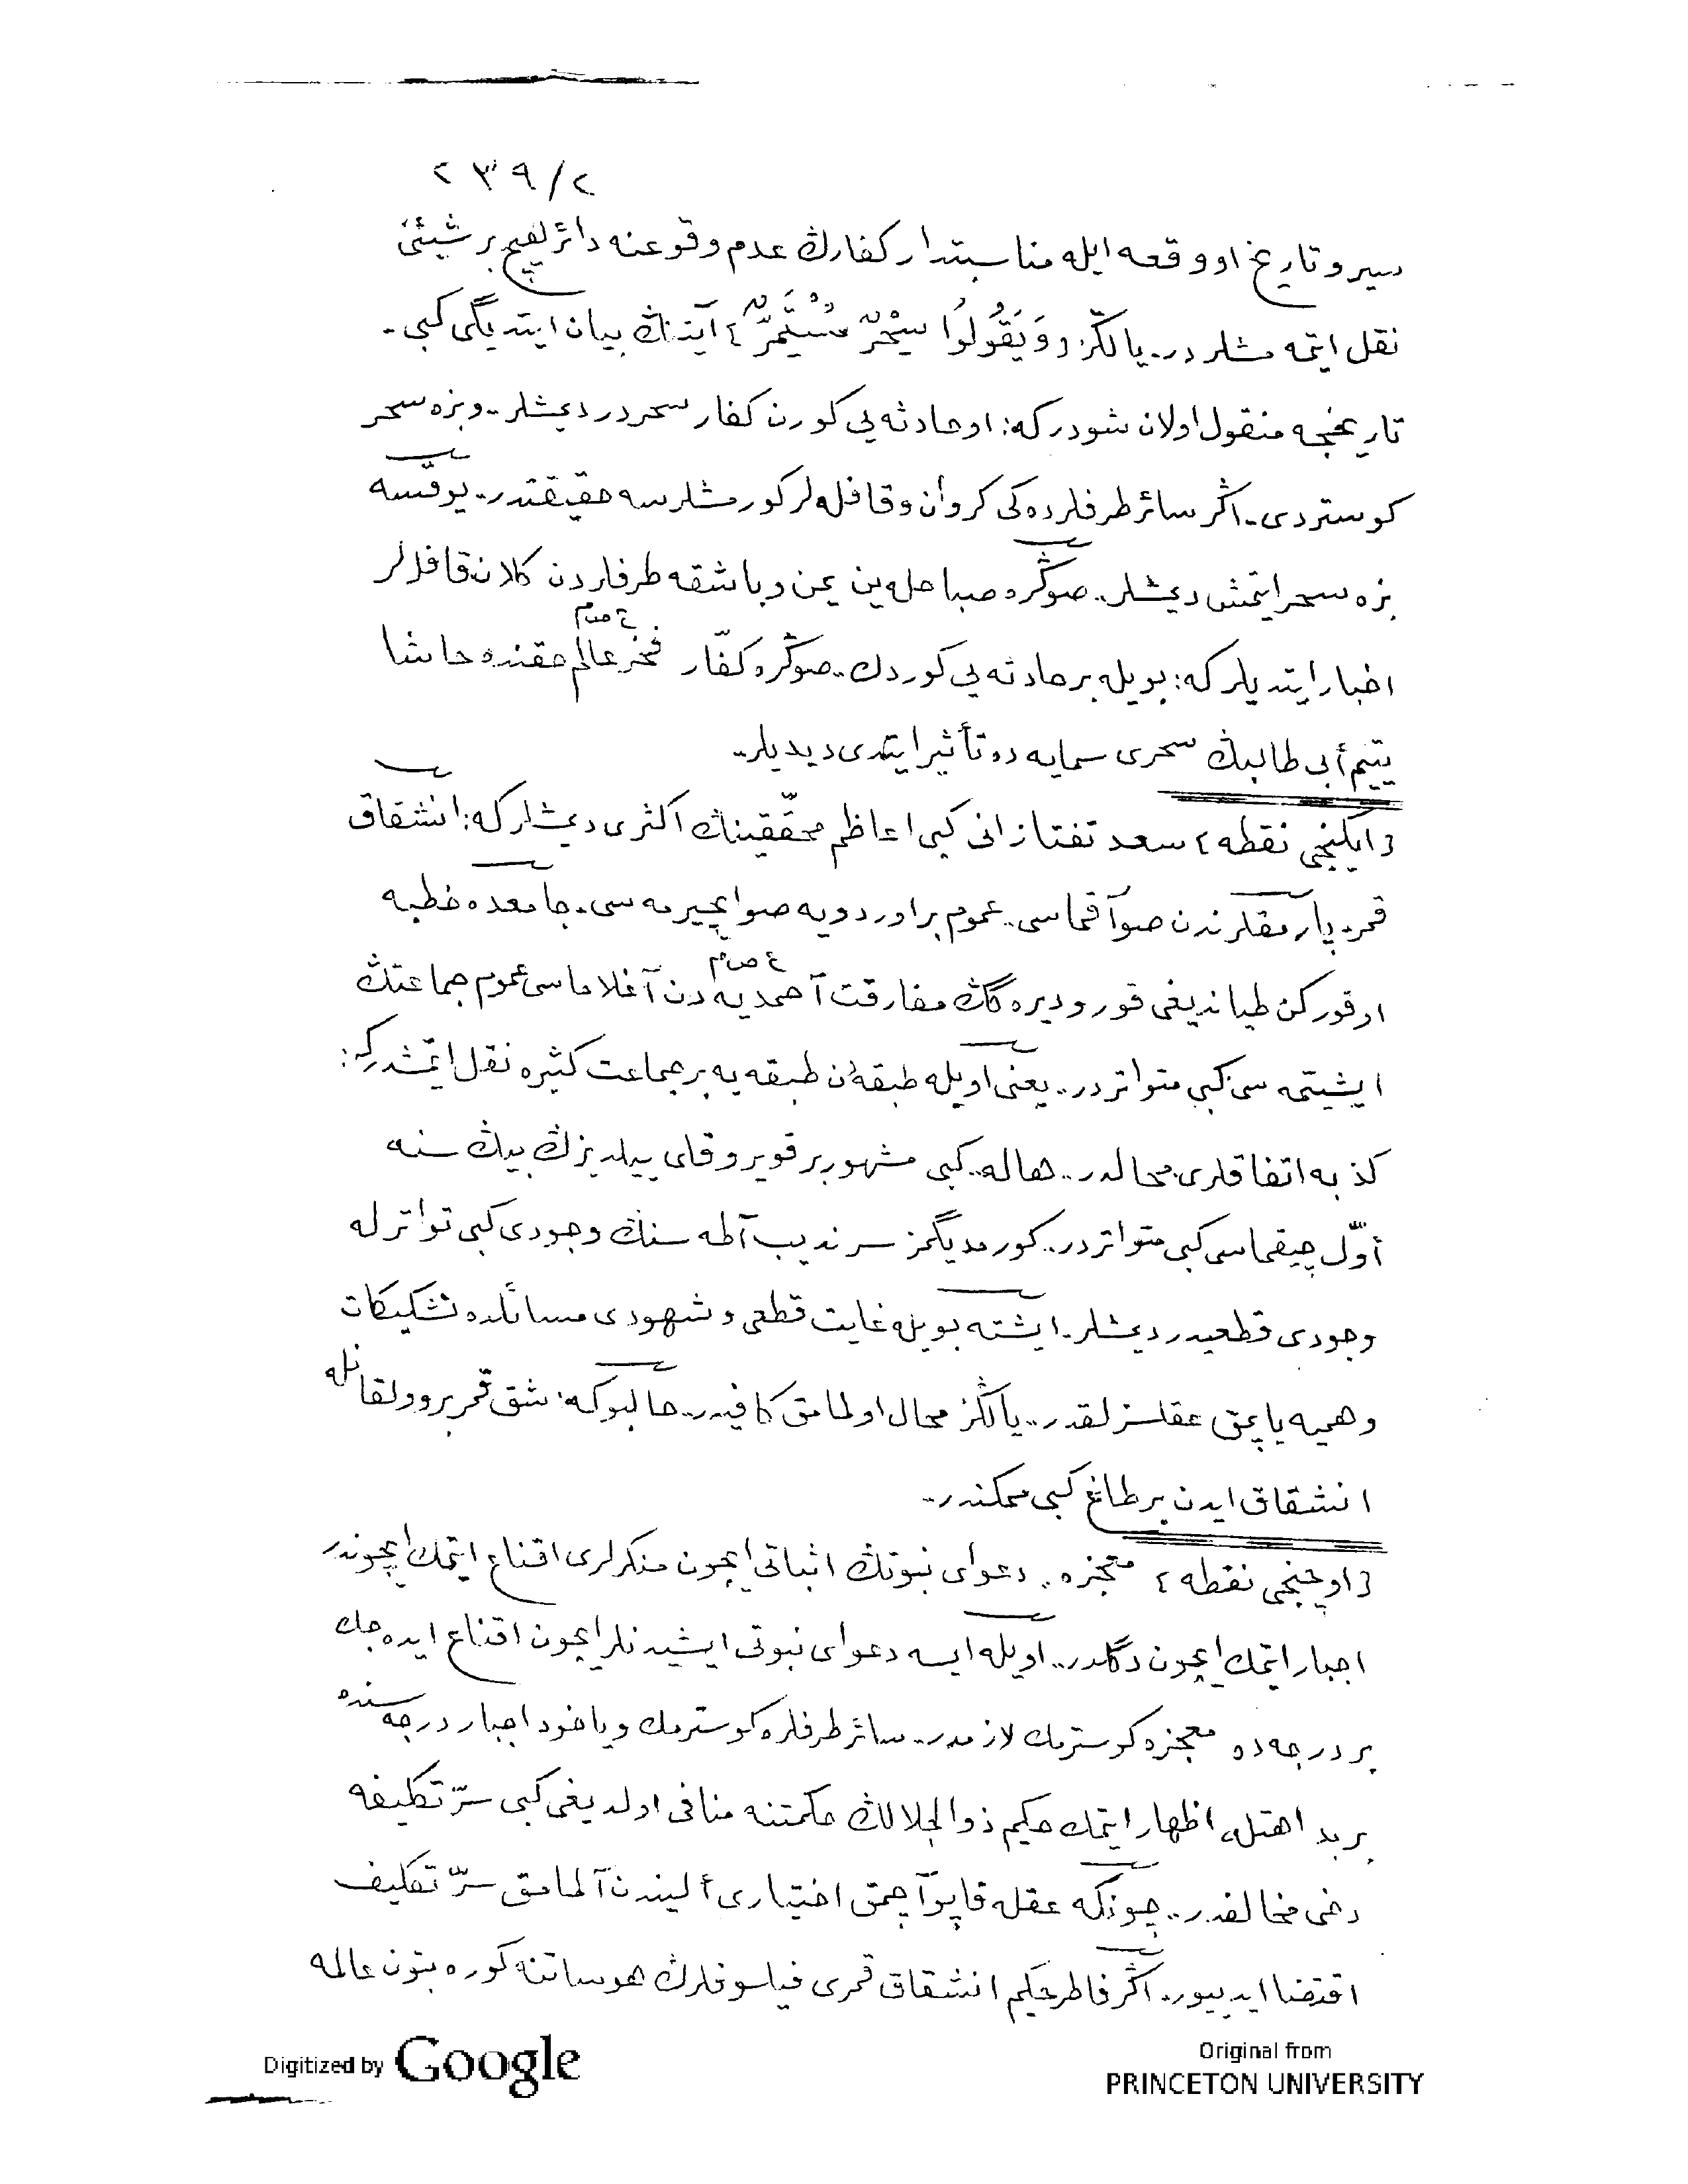 ٢٣٩/٢
سير و تاريخ او وقعه ايله مناسبتدار كفارڭ عدم وقوعنه دائر هيچ بر شيئى
نقل ايتمه مشلردر.. يالڭز ﴿ وَيَقُولُوا سِحْرٌ مُسْتَمِرٌّ ﴾ آيتنڭ بيان ايتديگى كبى..
تاريخجه منقول اولان شودركه: او حادثه يى كورن كفار سحردر ديمشلر.. وبزه سحر
كوستردى.. اڭر سائر طرفلرده كى كروان و قافله لر كورمشلرسه حقيقتدر.. يوقسه
بزه سحر ايتمش ديمشلر.. صوڭره صباحله ين يمن و باشقه طرفلردن كلان قافله لر
اخبار ايتديلركه: بويله بر حادثه يى كوردك.. صوڭره كفّار فخر عالم ع صم حقنده حاشا
يتيم أبى طالبڭ سحرى سمايه ده تأثير ايتدى ديديلر..
﴿ ايكنجى نقطه ﴾ سعد تفتازانى كبى اعاظم محقّقينڭ اكثرى ديمشلركه: انشقاق
قمر.. پارمقلرندن صو آقماسى.. عموم بر اوردويه صو ايچيرمه سى.. جامعده خطبه
اوقوركن طياندیغى قورو ديره گڭ مفارقت احمديه ع صم دن آغلاماسى عموم جماعتڭ
ايشيتمه سى كبى متواتردر.. يعنى اويله طبقه دن طبقه يه بر جماعت كثيره نقل ايتمشدركه:
كذبه اتفاقلرى محالدر.. هاله.. كبى مشهور بر قويروقلى ييلديزڭ بيڭ سنه
أوّل چيقماسى كبى متواتردر.. كورمديگمز سرنديب آطه سنڭ وجودى كبى تواترله
وجودى قطعيدر ديمشلر.. ايشته بويله غايت قطعى و شهودى مسائلده تشكيكات
وهميه ياپمق عقلسزلقدر.. يالڭز محال اولمامق كافيدر.. حالبوكه: شق قمر بر وولقانله
انشقاق ايدن بر طاغ كبى ممكندر..
﴿ اوچنجى نقطه ﴾ معجزه.. دعواى نبوتڭ اثباتى ايچون منكرلرى اقناع ايتمك ايچوندر
اجبار ايتمك ايچون دگلدر.. اويله ايسه دعواى نبوتى ايشيدنلر ايچون اقناع ايده جك
بر درجه ده معجزه كوسترمك لازمدر.. سائر طرفلره كوسترمك وياخود اجبار درجه سنده
بر بداهتله اظهار ايتمك حكيم ذوالجلالڭ حكمتنه منافى اولديغى كبى سرّ تكليفه
دخى مخالفدر.. چونكه عقله قاپو آچمق اختيارى ألیندن آلمامق سرّ تكليف
اقتضا ايدييور.. اڭر فاطر حكيم انشقاق قمرى فيلسوفلرڭ هوساتنه كوره بتون عالمه
Digitized by Google
Original from
PRINCETON UNIVERSITY